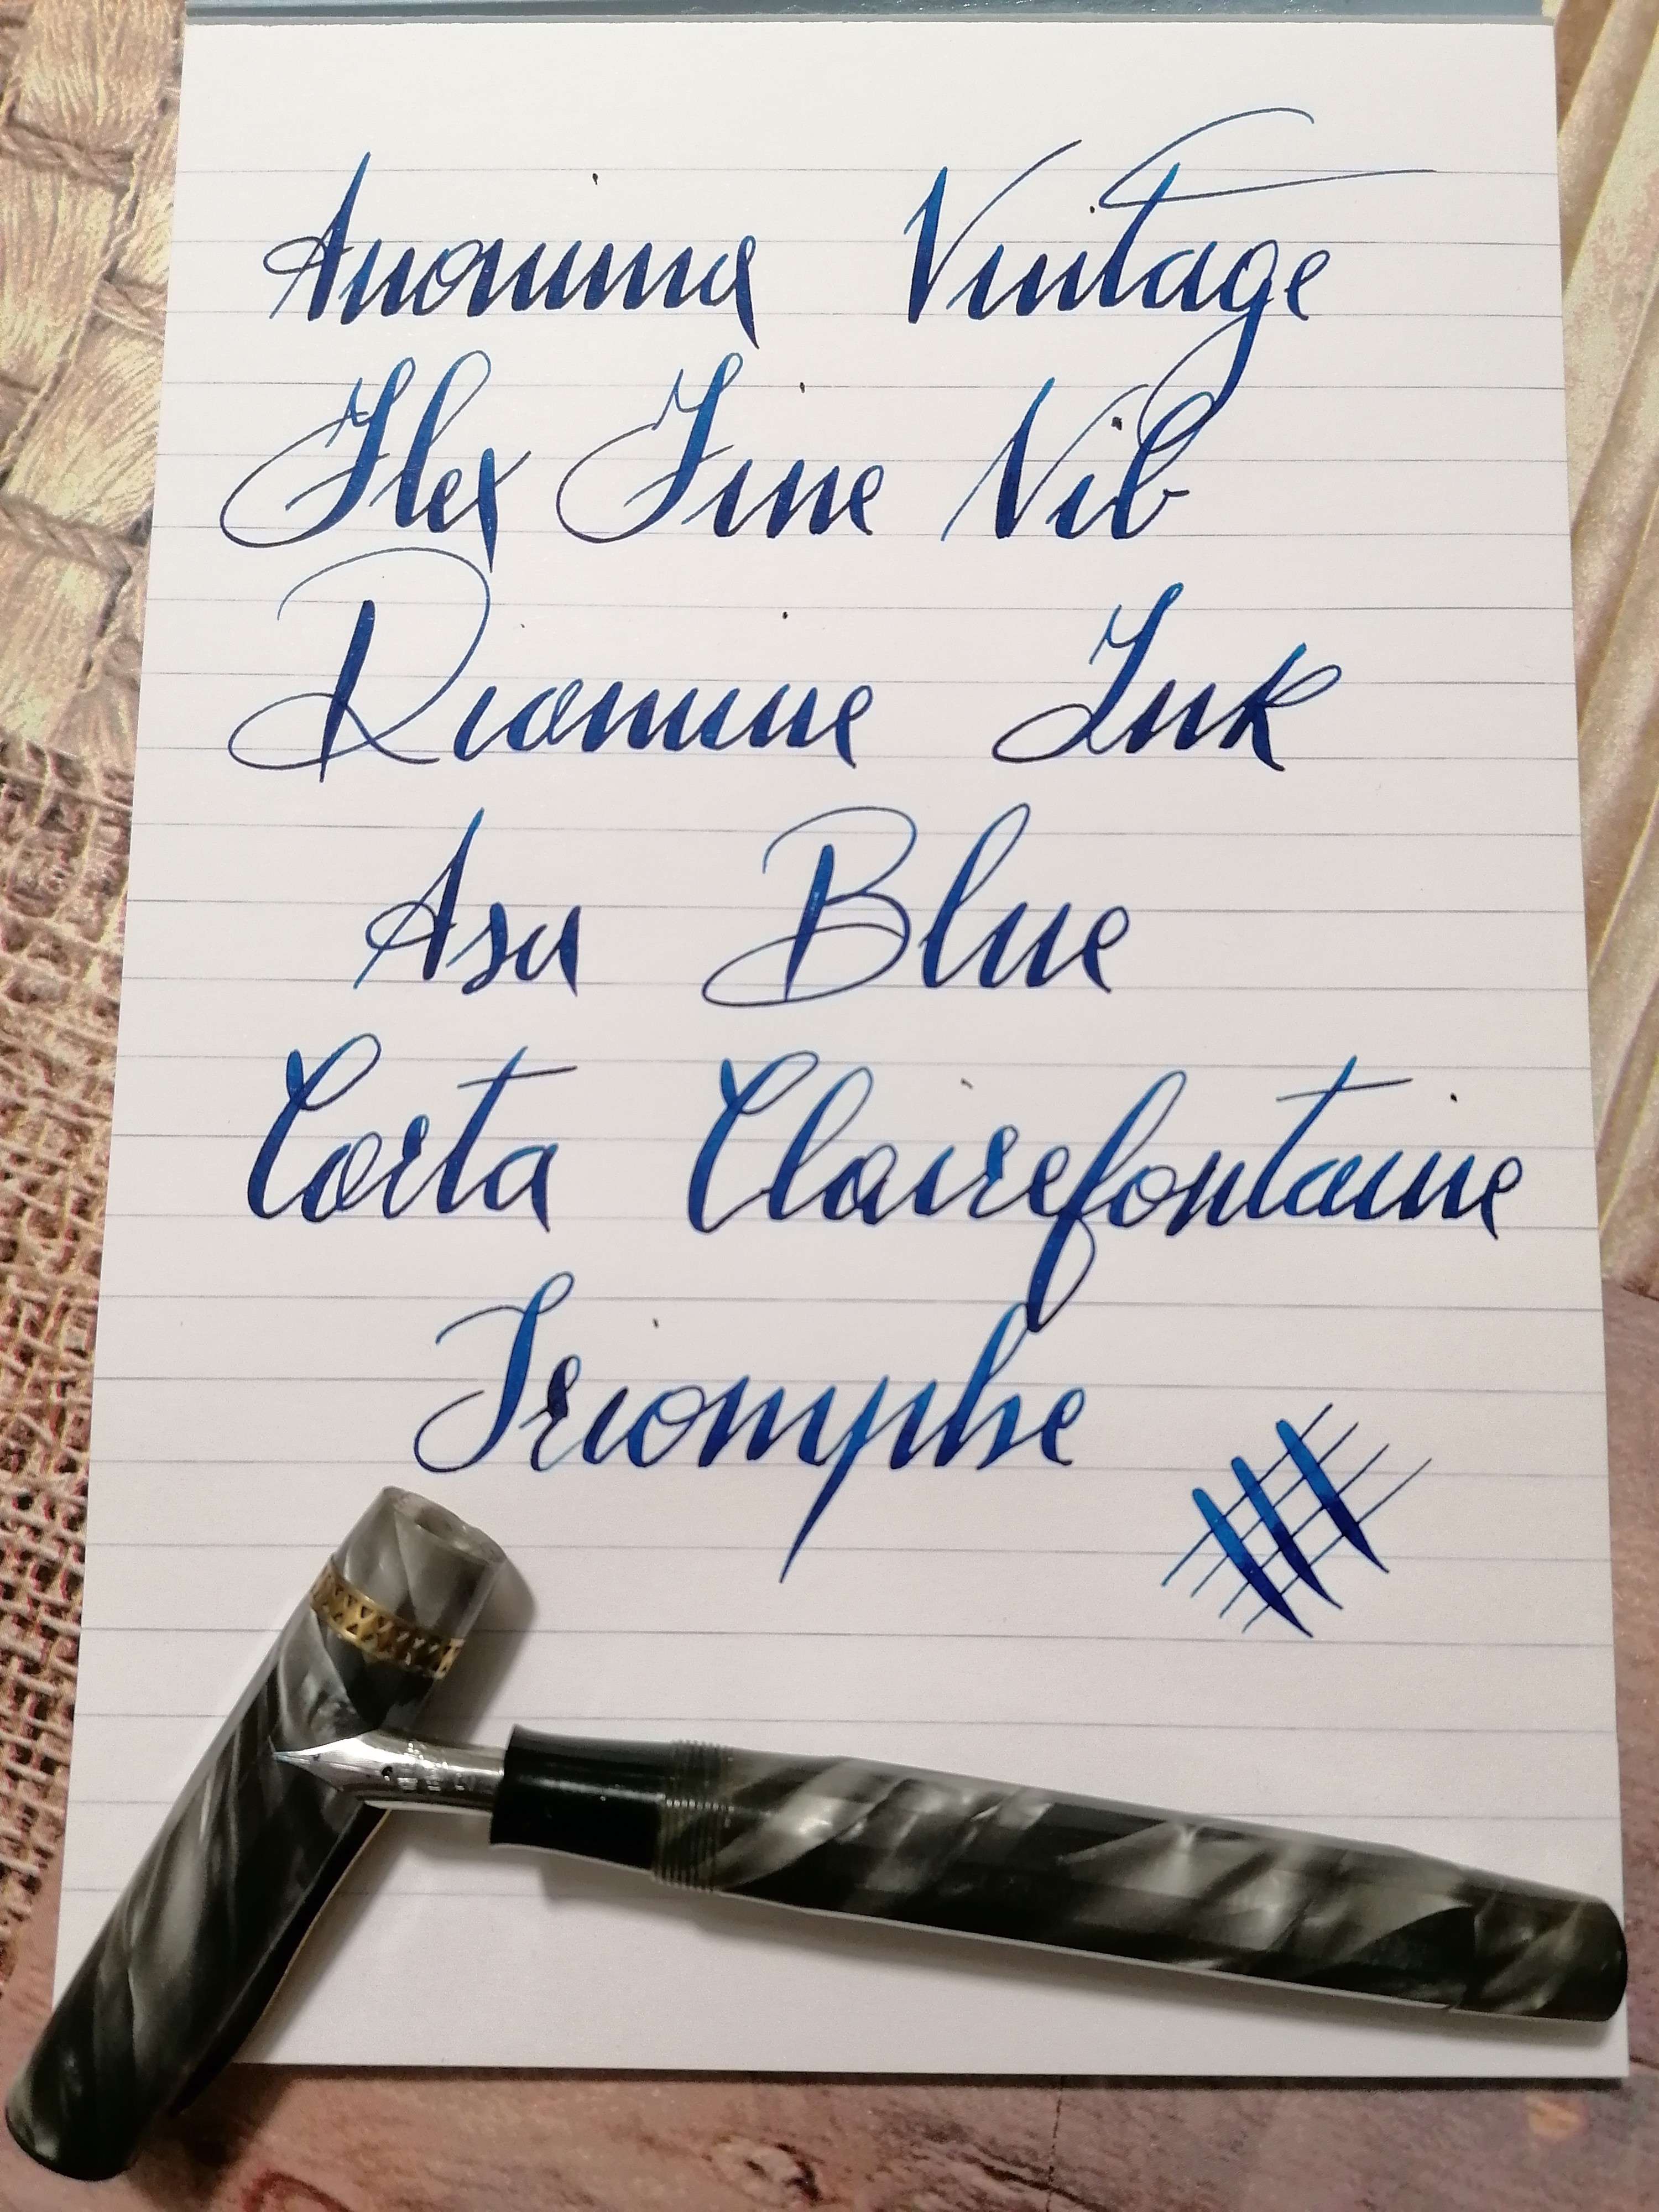 Anonima Vintage
Flex Fine Nib
Diamine Ink
Asa Blue
Carta Clairefontaine
Triomphe